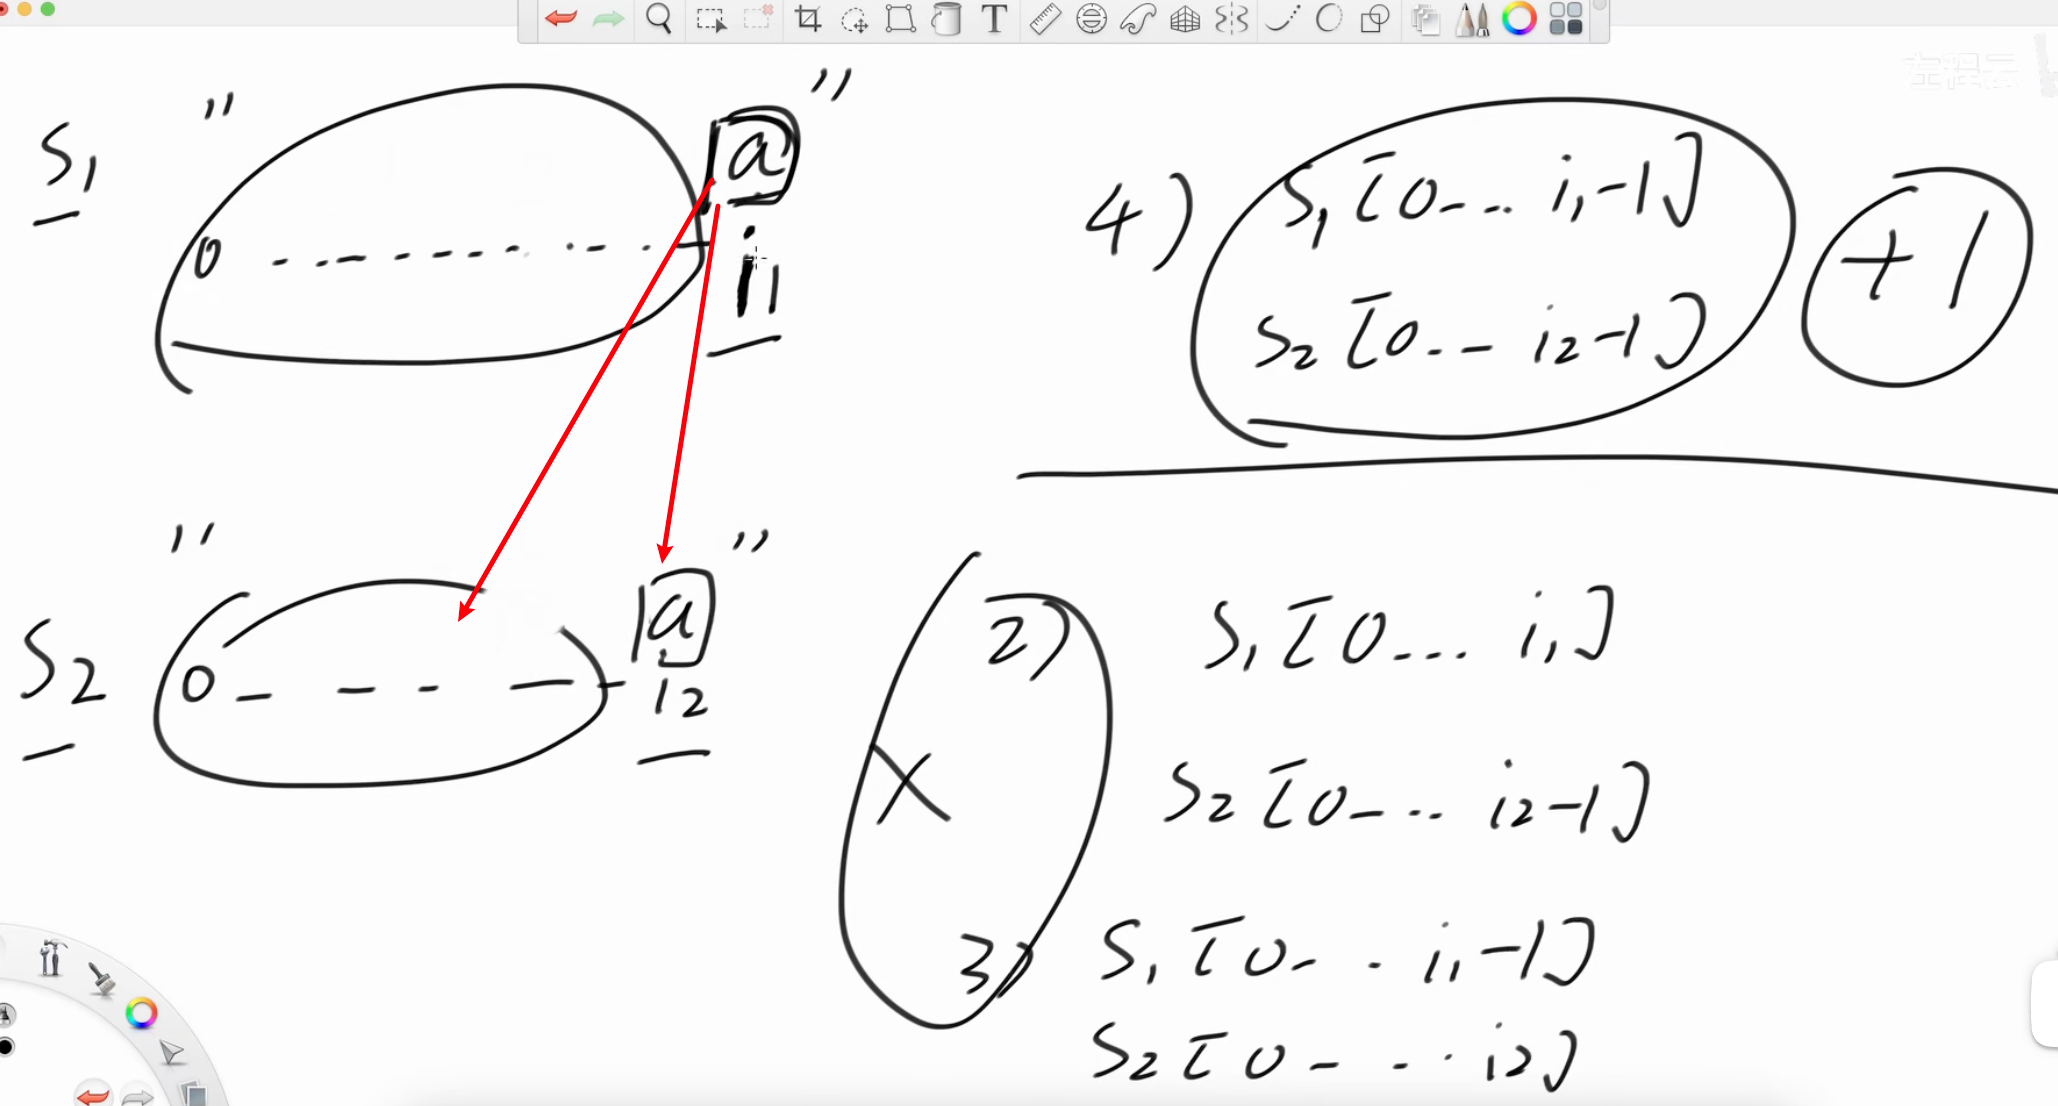 左程云
S1 " a "
0 i1
S2 " a "
0 i2
4) S1[0... i1-1] +1
S2[0... i2-1]
2) S1[0... i1]
S2[0... i2-1]
3) S1[0... i1-1]
S2[0... i2]